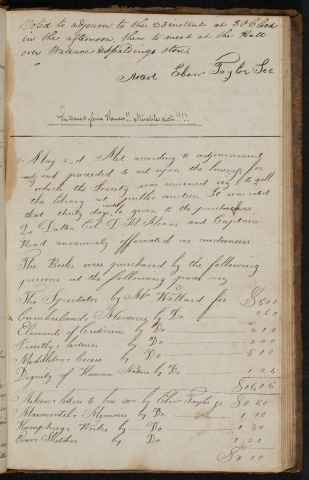 Voted to adjourn to the 23 instant at 3 O Clock
in the afternoon, then to meet at the Hall
over Wallace & Spaldings store.
Attest Eben Taylor Sec
May 23d Met according to adjournment
and proceeded to act upon the business for
which the Society was convened viz to sell
the library at public auction It was voted
that thirty days credit be given to the purchasers.
and Captain
Read unanimously officiated as auctioneers
The Books were purchased by the following
persons at the following prices viz
The Spectator by Willard for $5.00
Cumberlands Memoirs by Do 0.60
Elements of Criticism by Do 2.10
lectures by Do 2.00
Middletons Cicero by Do 5.00
Dignity of Human Nature by Do 1.25
Aikens letters to his son by Eben Taylor Jr $0.50
Marmontels Memoirs by Do 1.00
Humphreys Works by Do 1.30
Sketches by Do 1.20